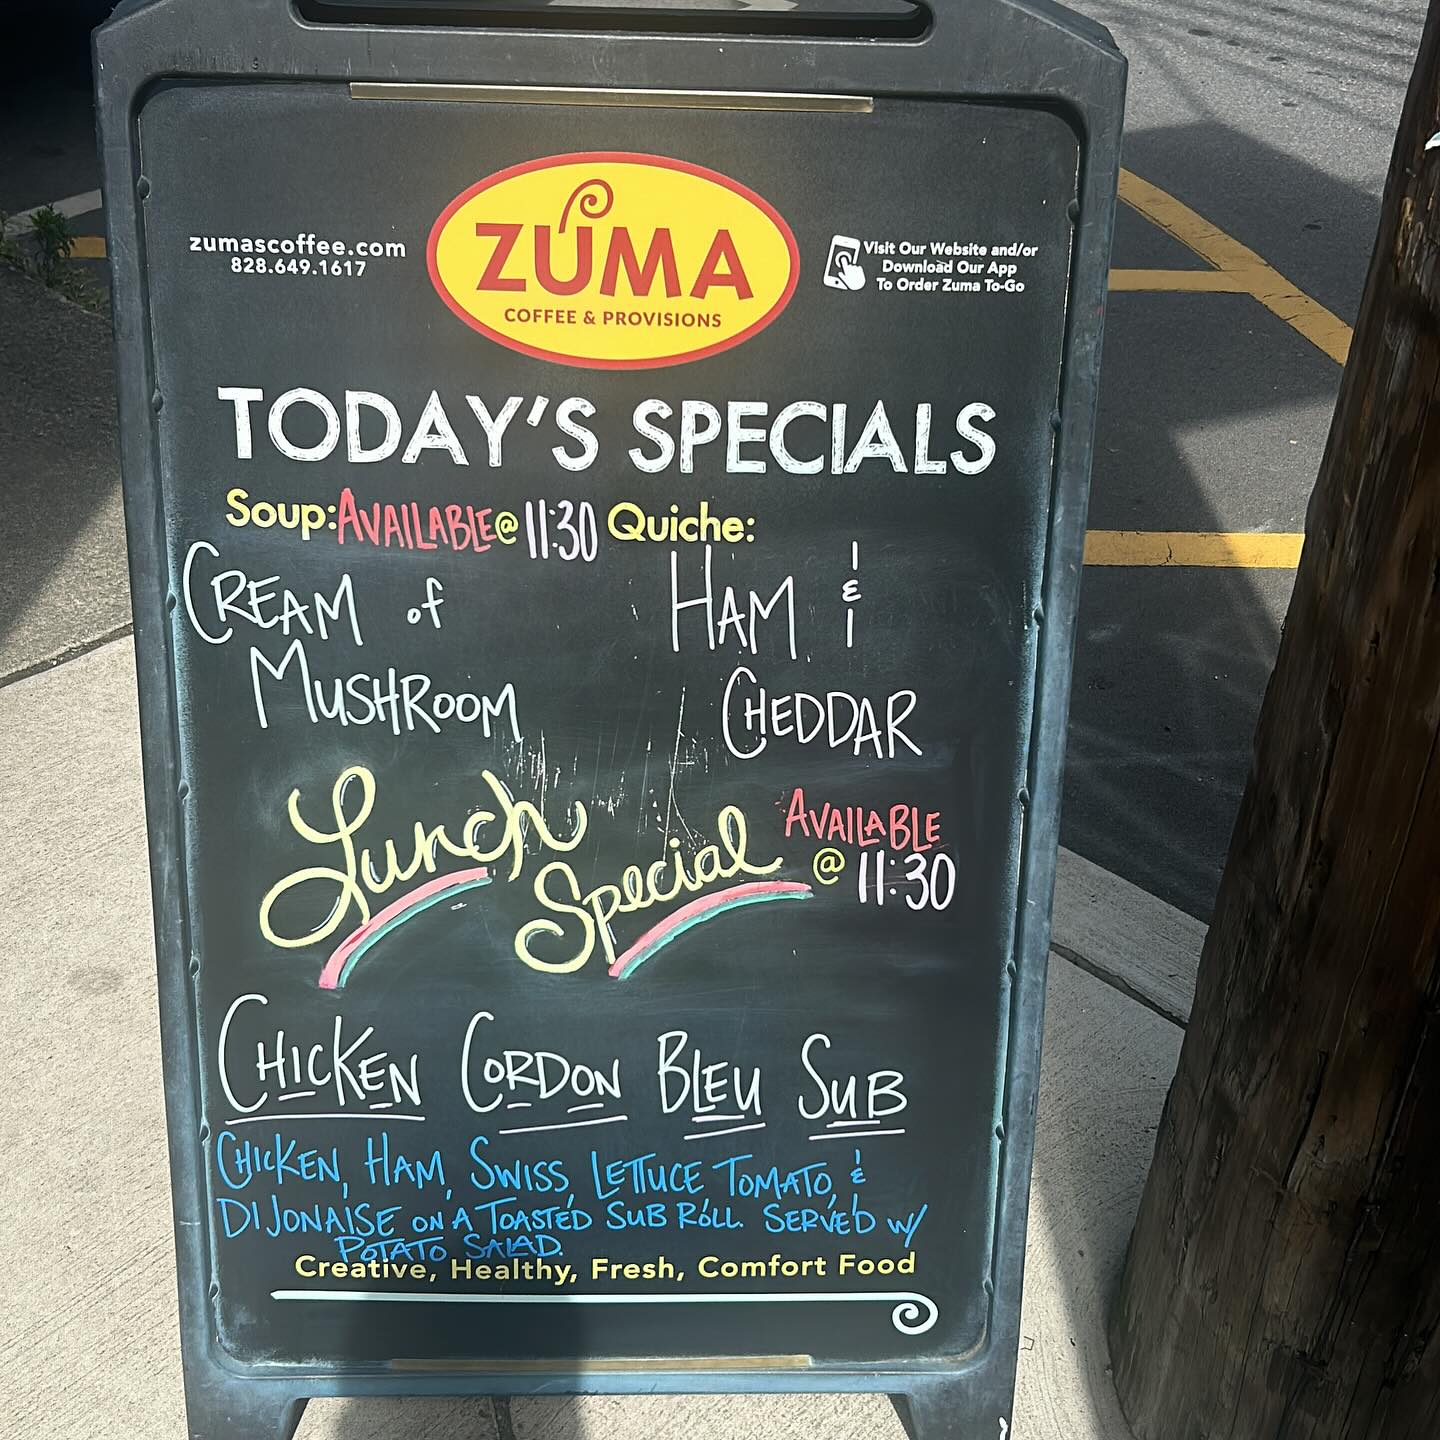 zumascoffee.com
828.649.1617
ZUMA
COFFEE & PROVISIONS
Visit Our Website and/or
Download Our App
To Order Zuma To-Go
TODAY'S SPECIALS
Soup: AVAILABLE @ 11:30
CREAM of
MUSHROOM
Quiche:
HAM &
CHEDDAR
Lunch
Special
AVAILABLE
@ 11:30
CHICKEN CORDON BLEU SUB
CHICKEN, HAM, SWISS, LETTUCE TOMATO, &
DIJONAISE ON A TOASTED SUB ROLL. SERVED W/
POTATO SALAD.
Creative, Healthy, Fresh, Comfort Food